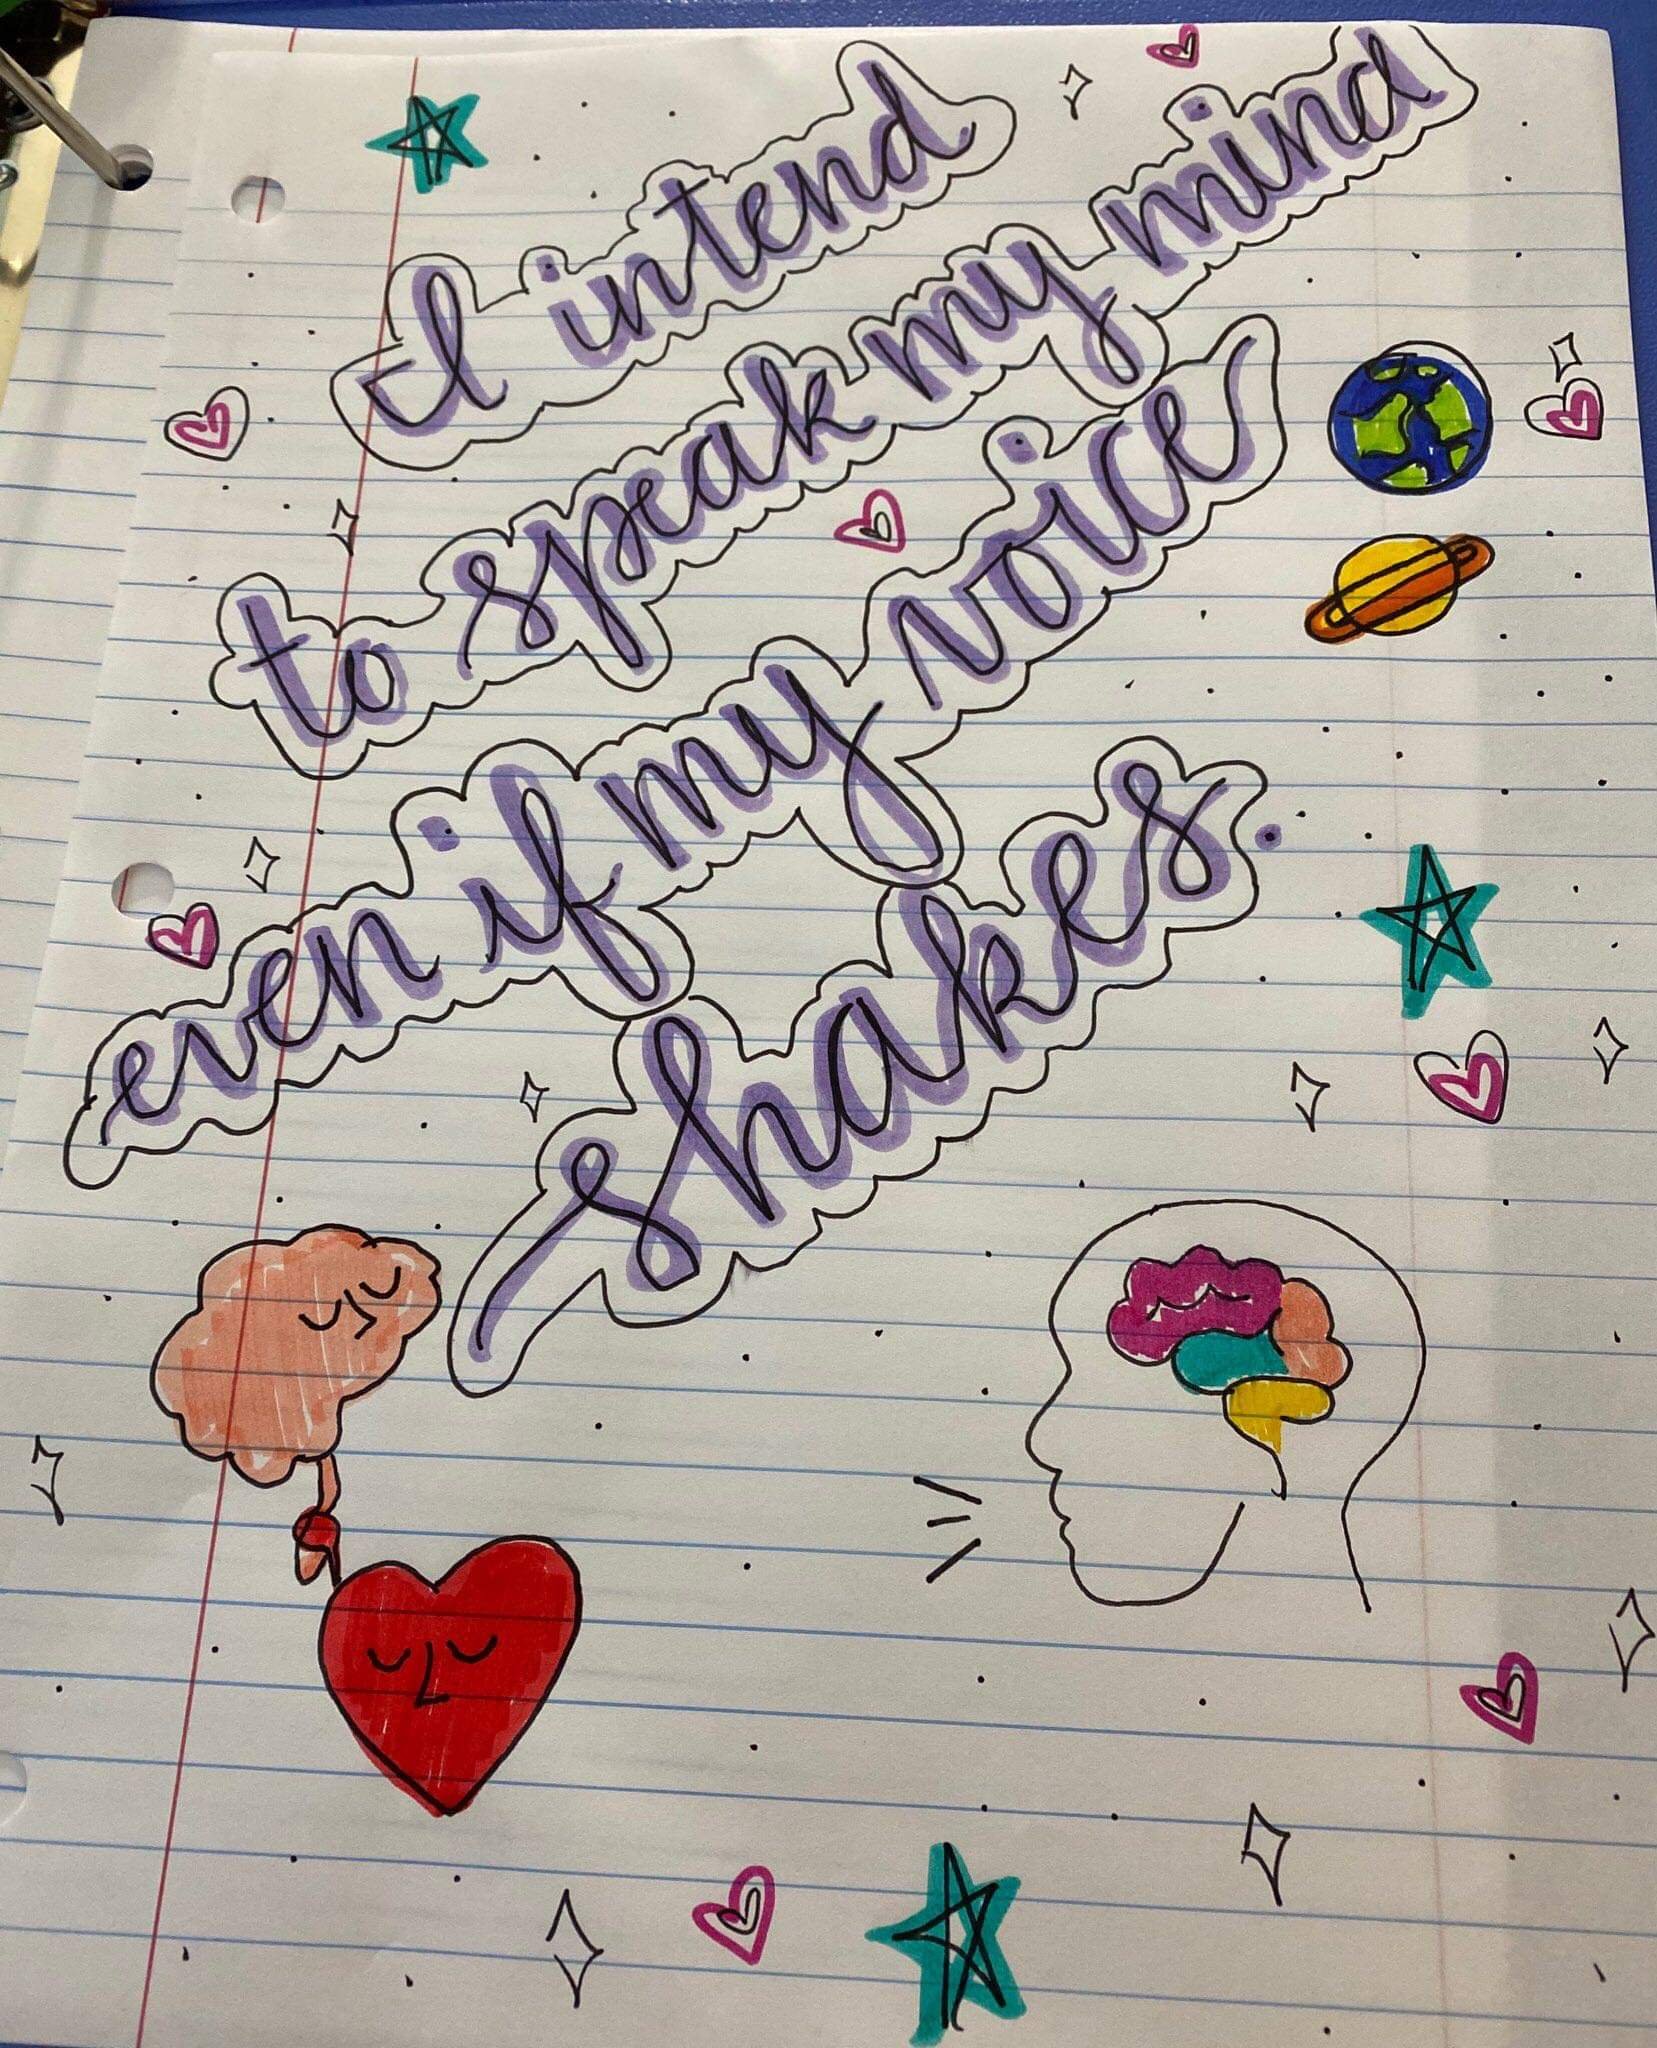 I intend
to speak my mind
even if my voice
shakes.